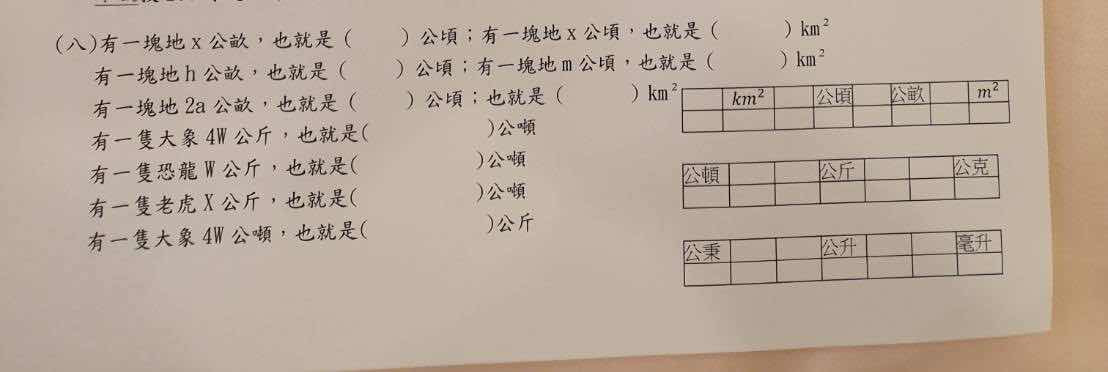 (八)有一塊地 x 公畝，也就是（　　）公頃；有一塊地 x 公頃，也就是（　　）km²
有一塊地 h 公畝，也就是（　　）公頃；有一塊地 m 公頃，也就是（　　）km²
有一塊地 2a 公畝，也就是（　　）公頃；也就是（　　）km²
有一隻大象 4W 公斤，也就是(　　)公噸
有一隻恐龍 W 公斤，也就是(　　)公噸
有一隻老虎 X 公斤，也就是(　　)公噸
有一隻大象 4W 公噸，也就是(　　)公斤
km² 公頃 公畝 m²
公頓 公斤 公克
公秉 公升 毫升